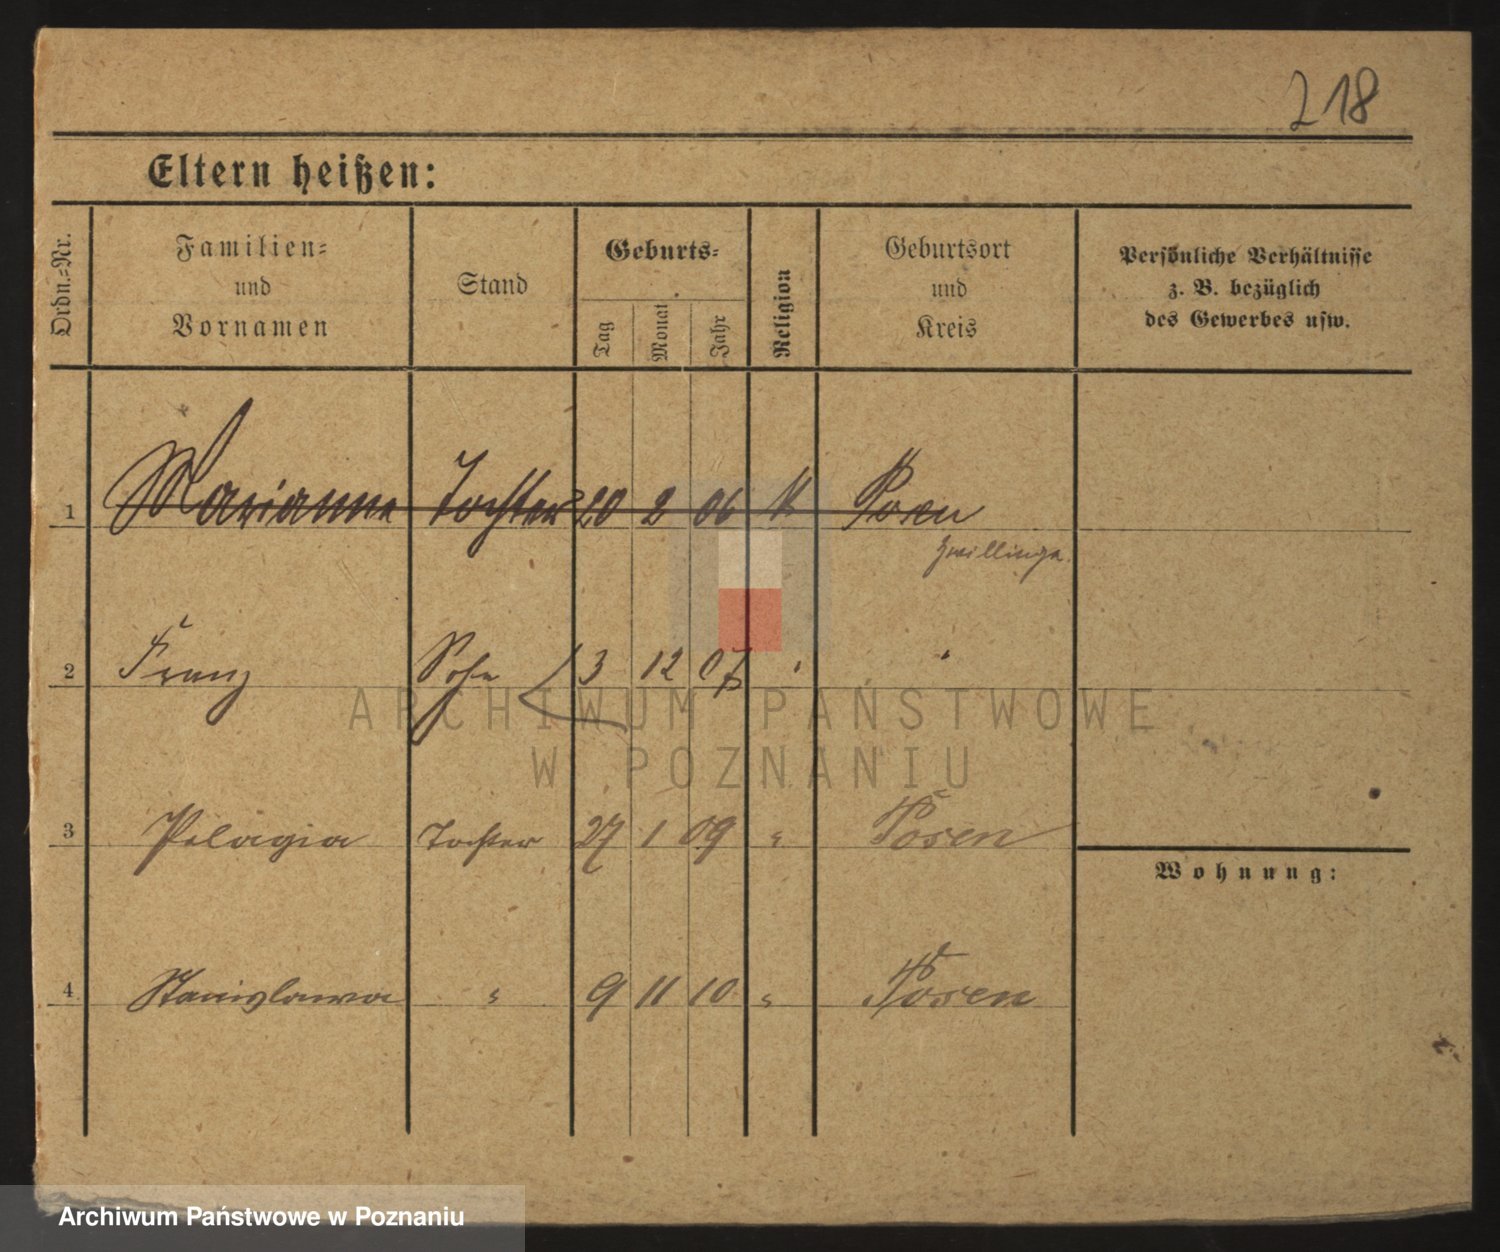 218
Eltern heißen:
Ordn.-Nr.
Familien-
und
Vornamen
Stand
Geburts-
Tag
Monat
Jahr
Religion
Geburtsort
und
Kreis
Persönliche Verhältnisse
z. B. bezüglich
des Gewerbes usw.
1 Marianne Tochter 20 2 06 k Posen
Zwillinge.
2 Franz Sohn 3 12 07 " "
3 Pelagia Tochter 27 1 09 " Posen
Wohnung:
4 Stanislawa " 9 11 10 " Posen
ARCHIWUM PAŃSTWOWE
W POZNANIU
Archiwum Państwowe w Poznaniu